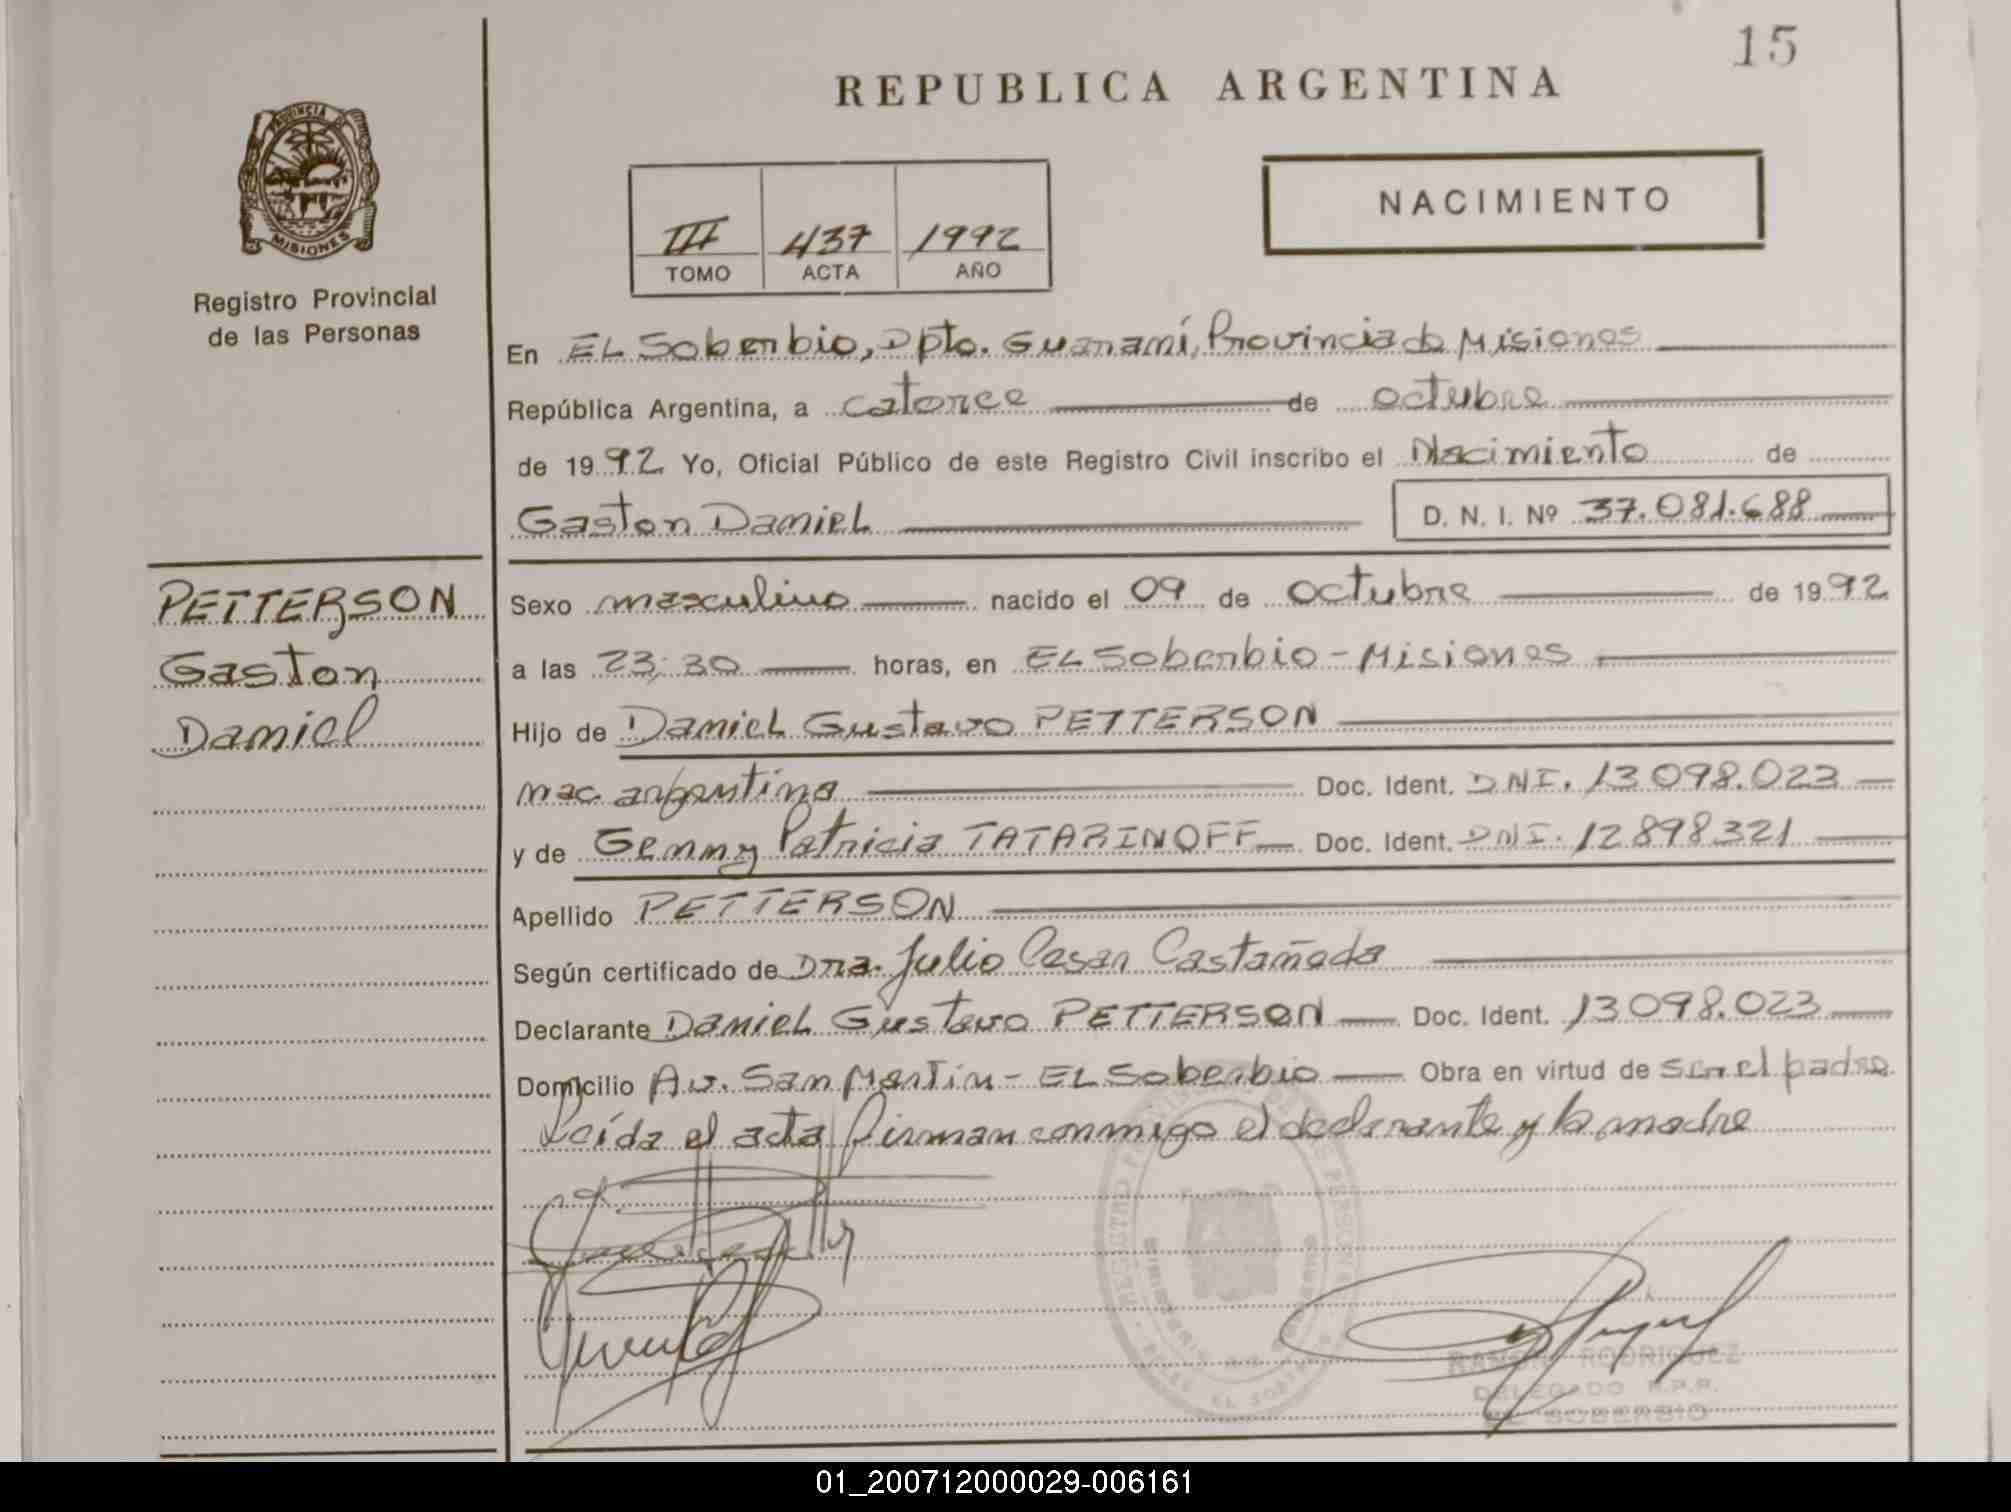 15
REPUBLICA ARGENTINA
PROVINCIA DE
MISIONES
Registro Provincial
de las Personas
III 437 1992
TOMO ACTA AÑO
NACIMIENTO
En EL Soberbio, Dpto. Guaraní, Provincia de Misiones
República Argentina, a catorce de octubre
de 1992 Yo, Oficial Público de este Registro Civil inscribo el Nacimiento de
Gaston Daniel D. N. I. Nº 37.081.688
PETTERSON
Gaston
Daniel
Sexo masculino nacido el 09 de octubre de 1992
a las 23:30 horas, en EL Soberbio - Misiones
Hijo de Daniel Gustavo PETTERSON
nac. argentina Doc. Ident. DNI. 13.098.023
y de Genny Patricia TATARINOFF Doc. Ident. DNI. 12.898321
Apellido PETTERSON
Según certificado de Dra. Julio Cesar Castañeda
Declarante Daniel Gustavo PETTERSON Doc. Ident. 13.098.023
Domicilio Av. San Martin - EL Soberbio Obra en virtud de ser el padre
Leída el acta firman conmigo el declarante y la madre
RAMON RODRIGUEZ
DELEGADO R.P.P.
EL SOBERBIO
01_200712000029-006161